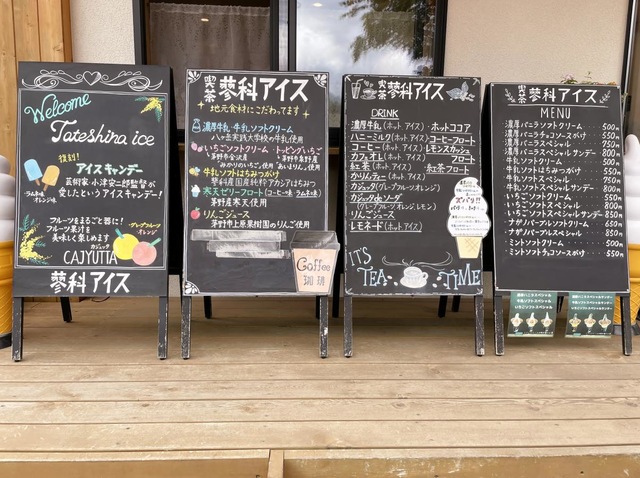 Welcome
Tateshina ice
復刻!
アイスキャンデー
芸術家 小津安二郎監督が
愛したというアイスキャンデー!
ラムネ味
オレンジ味
フルーツをまるごと器に!
フルーツ果汁を
美味しく楽しめます
カジュッタ
CAJYUTTA
グレープフルーツ
オレンジ
蓼科アイス
喫茶 蓼科アイス
地元食材にこだわってます
濃厚牛乳・牛乳ソフトクリーム
八ヶ岳実践大学校の牛乳使用
いちごソフトクリーム・トッピングいちご
牛乳ソフトはちみつがけ
蓼科産国産純粋アカシアはちみつ
寒天ゼリーフロート(コーヒー味 ラムネ味)
茅野産寒天使用
りんごジュース
茅野市上原果樹園のりんご使用
Coffee
珈琲
喫茶 蓼科アイス
DRINK
濃厚牛乳(ホット.アイス)・ホットココア
ハニーミルク(ホット.アイス) コーヒーフロート
コーヒー(ホット.アイス) レモンスカッシュ
カフェオレ(ホット.アイス) フロート
紅茶(ホット.アイス) 紅茶フロート
かりんティー(ホット.アイス)
カジュッタ(グレープフルーツ.オレンジ)
カジュッタdeソーダ
(グレープフルーツ.オレンジ.レモン)
りんごジュース
レモネード(ホット.アイス)
ズバリ!!
IT'S
TEA TIME
喫茶 蓼科アイス
MENU
濃厚バニラソフトクリーム 500円
濃厚バニラチョコソースがけ 550円
濃厚バニラスペシャル 750円
濃厚バニラスペシャルサンデー 800円
牛乳ソフトクリーム 500円
牛乳ソフトはちみつがけ 550円
牛乳ソフトスペシャル 750円
牛乳ソフトスペシャルサンデー 800円
いちごソフトクリーム 550円
いちごソフトスペシャル 800円
いちごソフトスペシャルサンデー 850円
ナガノパープルソフトクリーム 550円
ナガノパープルスペシャル 850円
ミントソフトクリーム 500円
ミントソフトチョコソースがけ 550円